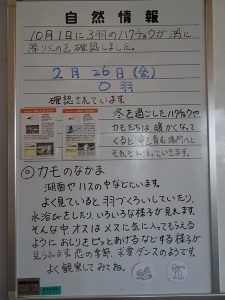 自然情報
10月1日に3羽のハクチョウが湖に
降りたのを確認しました。
2月26日(金)
0羽
確認されています
冬を過ごしたハクチョウや
カモたちは、暖かくなって
くると、
それぞれ
◎カモのなかま
湖面やハスの中などにいます。
よく見ていると羽づくろいしていたり、
水浴びをしたり、いろいろな様子が見れます。
そんな中オスはメスに気に入ってもらえる
ようにおしりをピッとあげるなどする様子が
見られます。恋の季節、求愛ダンスのようです。
よく観察してみてね。